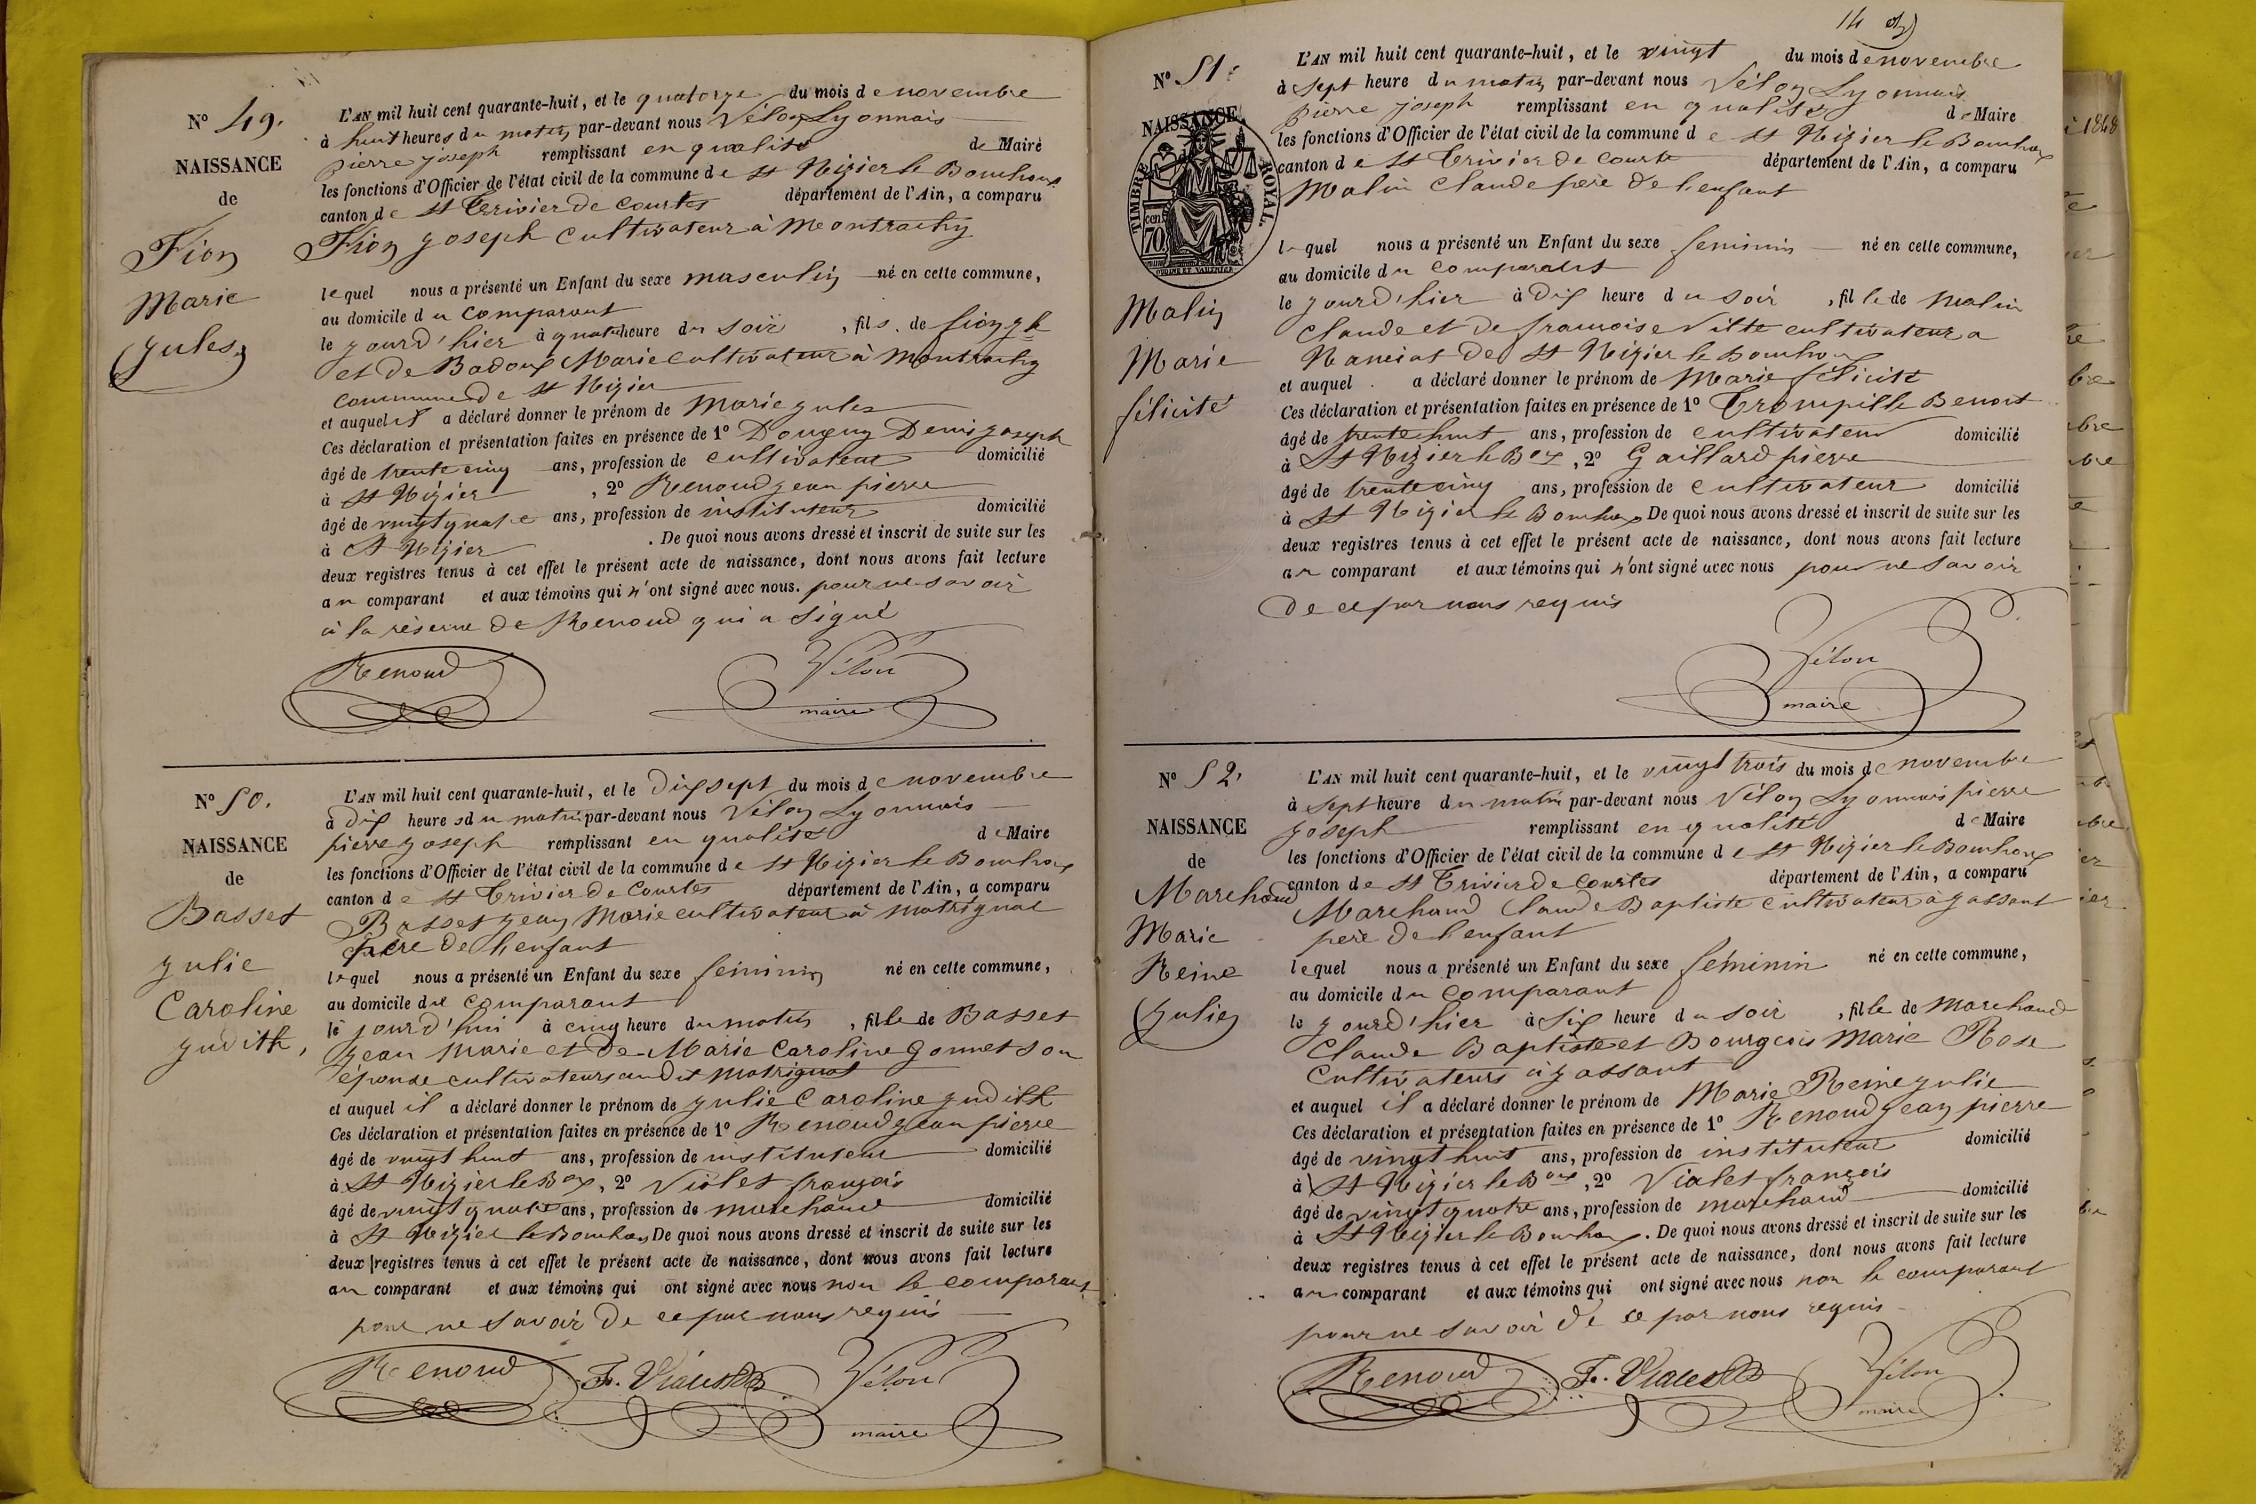 N° 49.
NAISSANCE
de
Fion
Marie
Jules
L'AN mil huit cent quarante-huit, et le quatorze du mois de novembre
à huit heures du matin par-devant nous Vélon Lyonnais
pierre joseph remplissant en qualité de Maire
les fonctions d'Officier de l'état civil de la commune de St Nizier le Bouchoux
canton de St Trivier de Courtes département de l'Ain, a comparu
Fion joseph cultivateur à Montrachy
lequel nous a présenté un Enfant du sexe masculin né en cette commune,
au domicile du comparant
le jourd'hier à quatre heure du soir, fils de fion jh
et de Badoux Marie cultivateur à Montrachy
commune de St Nizier
et auquel il a déclaré donner le prénom de Marie jules
Ces déclaration et présentation faites en présence de 1° Denis joseph
âgé de trente cinq ans, profession de cultivateur domicilié
à St Nizier, 2° Renoud jean pierre
âgé de vingt quatre ans, profession de instituteur domicilié
à St Nizier. De quoi nous avons dressé et inscrit de suite sur les
deux registres tenus à cet effet le présent acte de naissance, dont nous avons fait lecture
au comparant et aux témoins qui n'ont signé avec nous. pour ne savoir
à la réserve de Renoud qui a signé
Renoud Vélon
maire
N° 50.
NAISSANCE
de
Basset
julie
Caroline
judith,
L'AN mil huit cent quarante-huit, et le dix sept du mois de novembre
à dix heures du matin par-devant nous Vélon Lyonnais
pierre joseph remplissant en qualité de Maire
les fonctions d'Officier de l'état civil de la commune de St Nizier le Bouchoux
canton de St Trivier de Courtes département de l'Ain, a comparu
Basset jean Marie cultivateur à Matrignat
père de l'enfant
lequel nous a présenté un Enfant du sexe feminin né en cette commune,
au domicile du comparant
le jourd'hui à cinq heure du matin, fille de Basset
jean Marie et de Marie Caroline Gonnet son
épouse cultivateurs audit Matrignat
et auquel il a déclaré donner le prénom de julie Caroline judith
Ces déclaration et présentation faites en présence de 1° Renoud jean pierre
âgé de vingt huit ans, profession de instituteur domicilié
à St Nizier le Boux, 2° Violet françois
âgé de vingt quatre ans, profession de marchand domicilié
à St Nizier le Bouchoux De quoi nous avons dressé et inscrit de suite sur les
deux registres tenus à cet effet le présent acte de naissance, dont nous avons fait lecture
au comparant et aux témoins qui ont signé avec nous non le comparant
pour ne savoir de ce par nous requis
Renoud F. Vialet Vélon
maire
14
N° 51.
NAISSANCE
TIMBRE ROYAL
70 cen
Malin
Marie
félicité
L'AN mil huit cent quarante-huit, et le vingt du mois de novembre
à sept heure du matin par-devant nous Vélon Lyonnais
pierre joseph remplissant en qualité de Maire
les fonctions d'Officier de l'état civil de la commune de St Nizier le Bouchoux
canton de St Trivier de Courte département de l'Ain, a comparu
Malin Claude père de l'enfant
lequel nous a présenté un Enfant du sexe feminin né en cette commune,
au domicile du comparant
le jourd'hier à dix heure du soir, fille de Malin
Claude et de françoise Vitte cultivateur a
Nanciat de St Nizier le Bouchoux
et auquel a déclaré donner le prénom de Marie félicité
Ces déclaration et présentation faites en présence de 1° Trompille Benoit
âgé de trente huit ans, profession de cultivateur domicilié
à St Nizier le Boux, 2° Gaillard pierre
âgé de trente cinq ans, profession de cultivateur domicilié
à St Nizier le Bouchoux De quoi nous avons dressé et inscrit de suite sur les
deux registres tenus à cet effet le présent acte de naissance, dont nous avons fait lecture
au comparant et aux témoins qui n'ont signé avec nous pour ne savoir
de ce par nous requis
Vélon
maire
N° 52.
NAISSANCE
de
Marchand
Marie
Reine
Julie
L'AN mil huit cent quarante-huit, et le vingt trois du mois de novembre
à sept heure du matin par-devant nous Vélon Lyonnais pierre
joseph remplissant en qualité de Maire
les fonctions d'Officier de l'état civil de la commune de St Nizier le Bouchoux
canton de St Trivier de Courtes département de l'Ain, a comparu
Marchand Claude Baptiste cultivateur à jassant
père de l'enfant
lequel nous a présenté un Enfant du sexe féminin né en cette commune,
au domicile du comparant
le jourd'hier à six heure du soir, fille de Marchand
Claude Baptiste et Bourgeois Marie Rose
Cultivateurs à jassant
et auquel il a déclaré donner le prénom de Marie Reine julie
Ces déclaration et présentation faites en présence de 1° Renoud jean pierre
âgé de vingt huit ans, profession de instituteur domicilié
à St Nizier le Boux, 2° Vialet françois
âgé de vingt quatre ans, profession de marchand domicilié
à St Nizier le Bouchoux. De quoi nous avons dressé et inscrit de suite sur les
deux registres tenus à cet effet le présent acte de naissance, dont nous avons fait lecture
au comparant et aux témoins qui ont signé avec nous non le comparant
pour ne savoir de ce par nous requis
Renoud F. Vialet Vélon
maire
1848